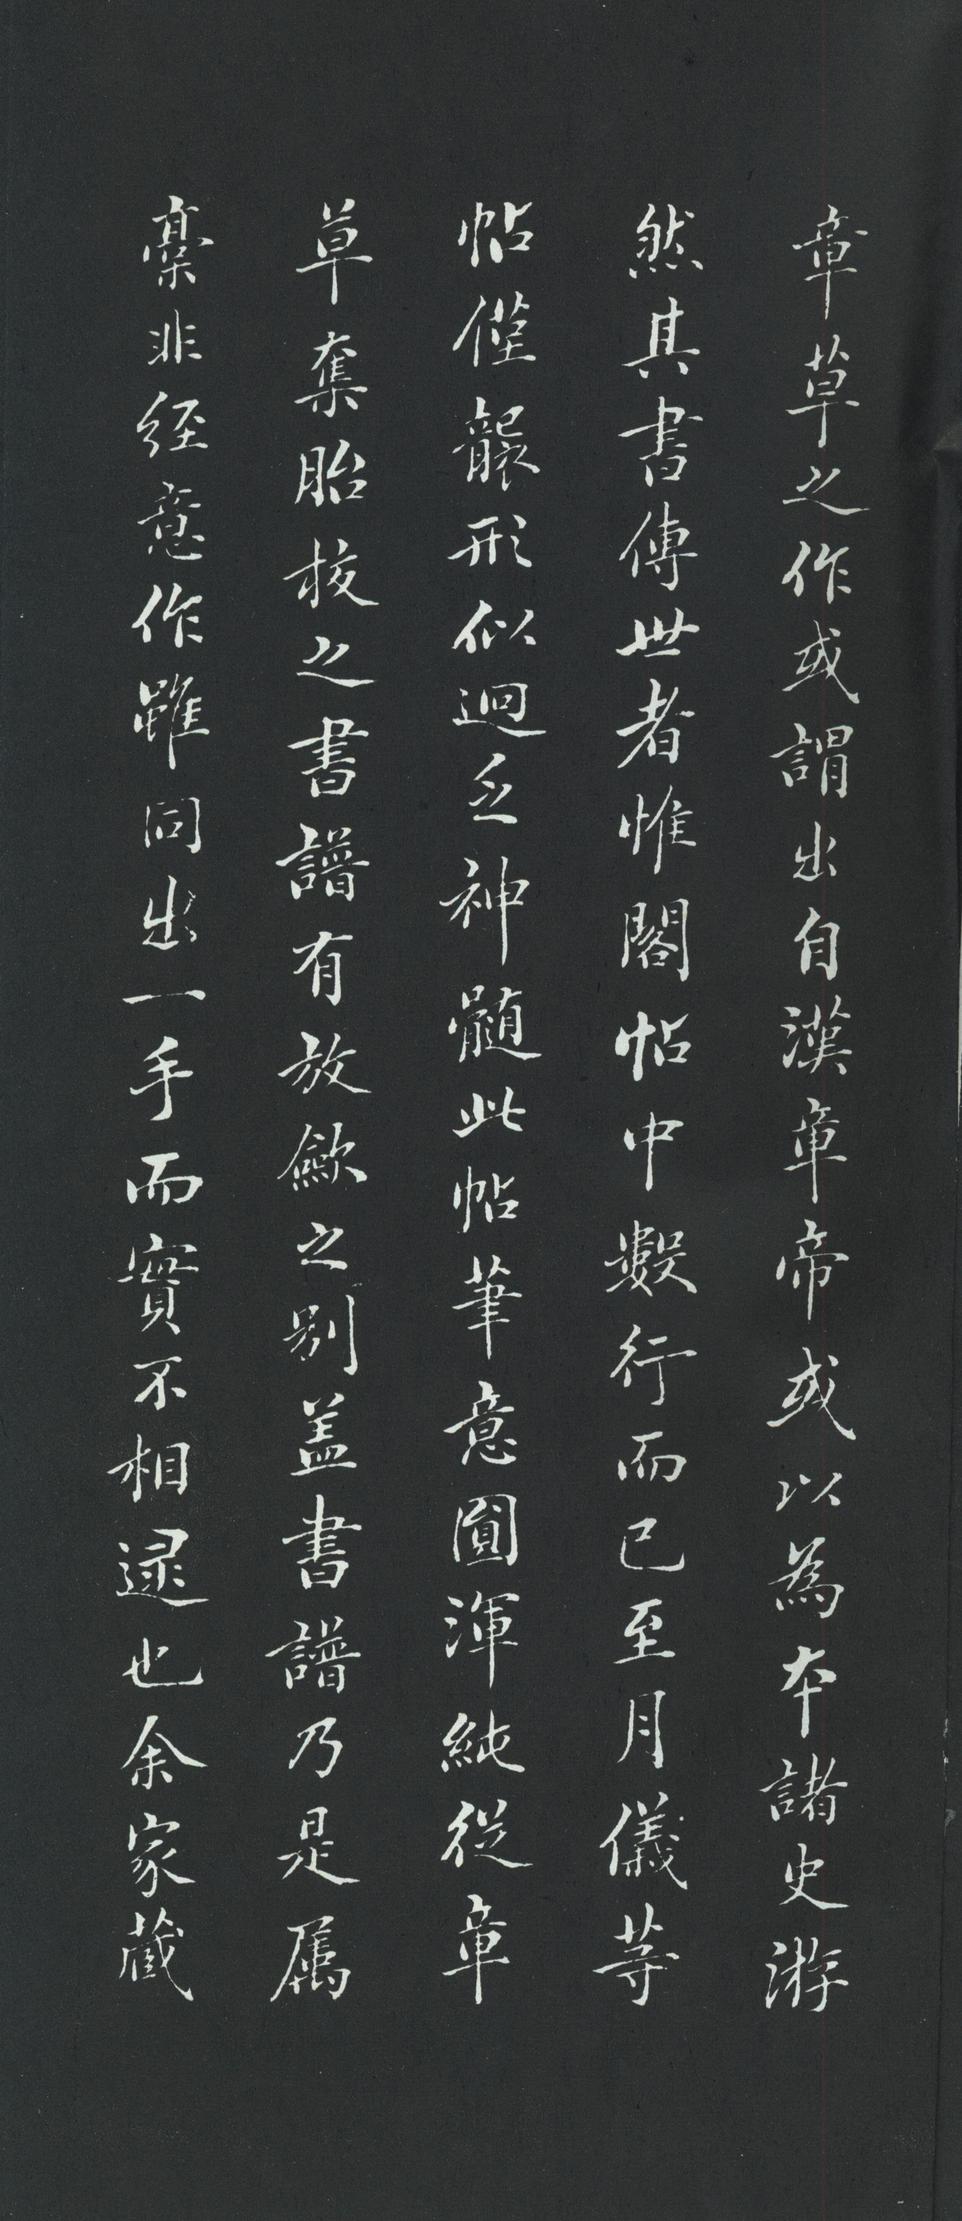 章草之作或謂出自漢章帝或以為本諸史游
然其書傳世者惟閣帖中數行而已至月儀等
帖僅襲形似迥乏神髓此帖筆意圓渾純從章
草奪胎校之書譜有放斂之別蓋書譜乃是屬
稾非經意作雖同出一手而實不相逮也余家藏